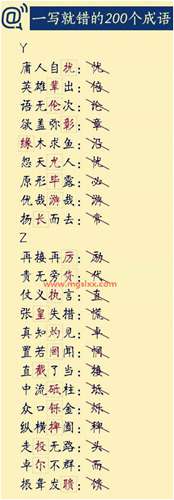 @ 一写就错的200个成语
Y
庸人自扰: 忧
英雄辈出: 倍
语无伦次: 论
欲盖弥彰: 章
缘木求鱼: 沿
怨天尤人: 忧
原形毕露: 必
优哉游哉:
扬长而去: 常
Z
再接再厉: 励
责无旁贷: 代
仗义执言: 直
www.mgslxx.com
张皇失措: 慌
真知灼见: 卓
置若罔闻: 惘
直截了当: 接
中流砥柱:
众口铄金: 烁
纵横捭阖:
走投无路: 头
卓尔不群: 而
振聋发聩: